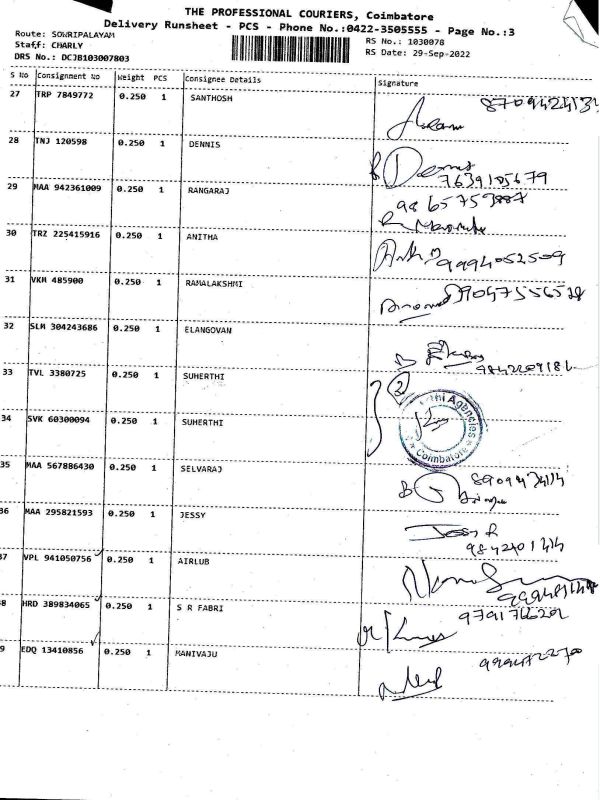 THE PROFESSIONAL COURIERS, Coimbatore
Delivery Runsheet - PCS - Phone No.:0422-3505555 - Page No.:3
Route: SOWRIPALAYAM
Staff: CHARLY
DRS No.: DCJB103007803
RS No.: 1030078
RS Date: 29-Sep-2022
S No Consignment No Weight PCS Consignee Details Signature
27 TRP 7849772 0.250 1 SANTHOSH
28 TNJ 120598 0.250 1 DENNIS
Dennis
7639185679
29 MAA 942361009 0.250 1 RANGARAJ
9865753887
30 TRZ 225415916 0.250 1 ANITHA
9994052509
31 VKM 485900 0.250 1 RAMALAKSHMI
32 SLM 304243686 0.250 1 ELANGOVAN
33 TVL 3380725 0.250 1 SUHERTHI
2
34 SVK 60300094 0.250 1 SUHERTHI
thi Agencies
Coimbatore
35 MAA 567886430 0.250 1 SELVARAJ
36 MAA 295821593 0.250 1 JESSY
Jessy R
37 VPL 941050756 0.250 1 AIRLUB
38 HRD 389834065 0.250 1 S R FABRI
9791766202
39 EDQ 13410856 0.250 1 MANIVAJU